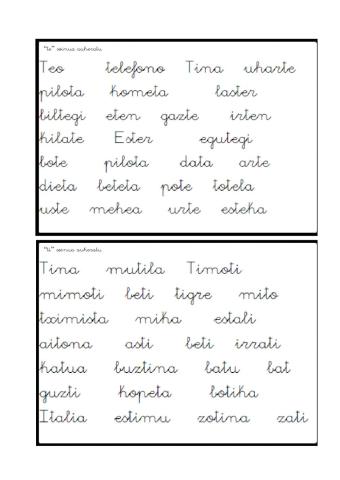 "te" soinua aukeratu
Teo telefono Tina uharte
pilota kometa laster
biltegi eten gazte irten
kilate Ester egutegi
bote pilota data arte
dieta beteta pote totela
uste mehea urte esteka
"ti" soinua aukeratu
Tina mutila Timoti
mimoti beti tigre mito
tximista mika estali
aitona asti beti irrati
katua buztina batu bat
guzti kopeta botika
Italia estimu zotina zati